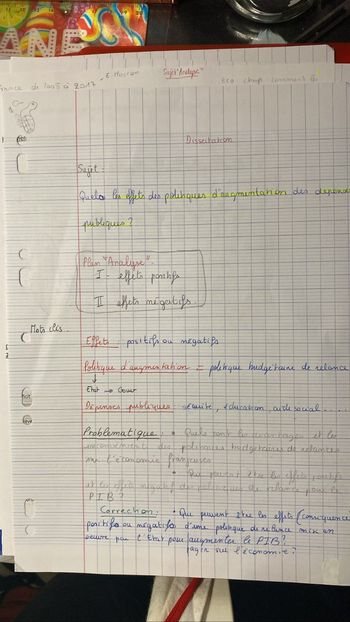 Sujet "Analyse"
Dissertation
Sujet :
Quels les effets des politiques d'augmentation des dépenses
publiques ?
Plan "Analyse" :
I - effets positifs
II effets négatifs
Mots clés
Effets : positifs ou négatifs
Politique d'augmentation = politique budgétaire de relance
Etat →
Dépenses publiques : sécurité, éducation, aide social ....
Problématique : • Quels sont les avantages et les
inconvénients des politiques budgétaires de relances
sur l'économie française
• Que peuvent être les effets positifs
et les effets négatifs des politiques de relance pour le
PIB ?
Correction : • Que peuvent être les effets (conséquence
positifs ou négatifs d'une politique de relance mis en
oeuvre par l'Etat pour augmenter le PIB ?
sur l'économie ?